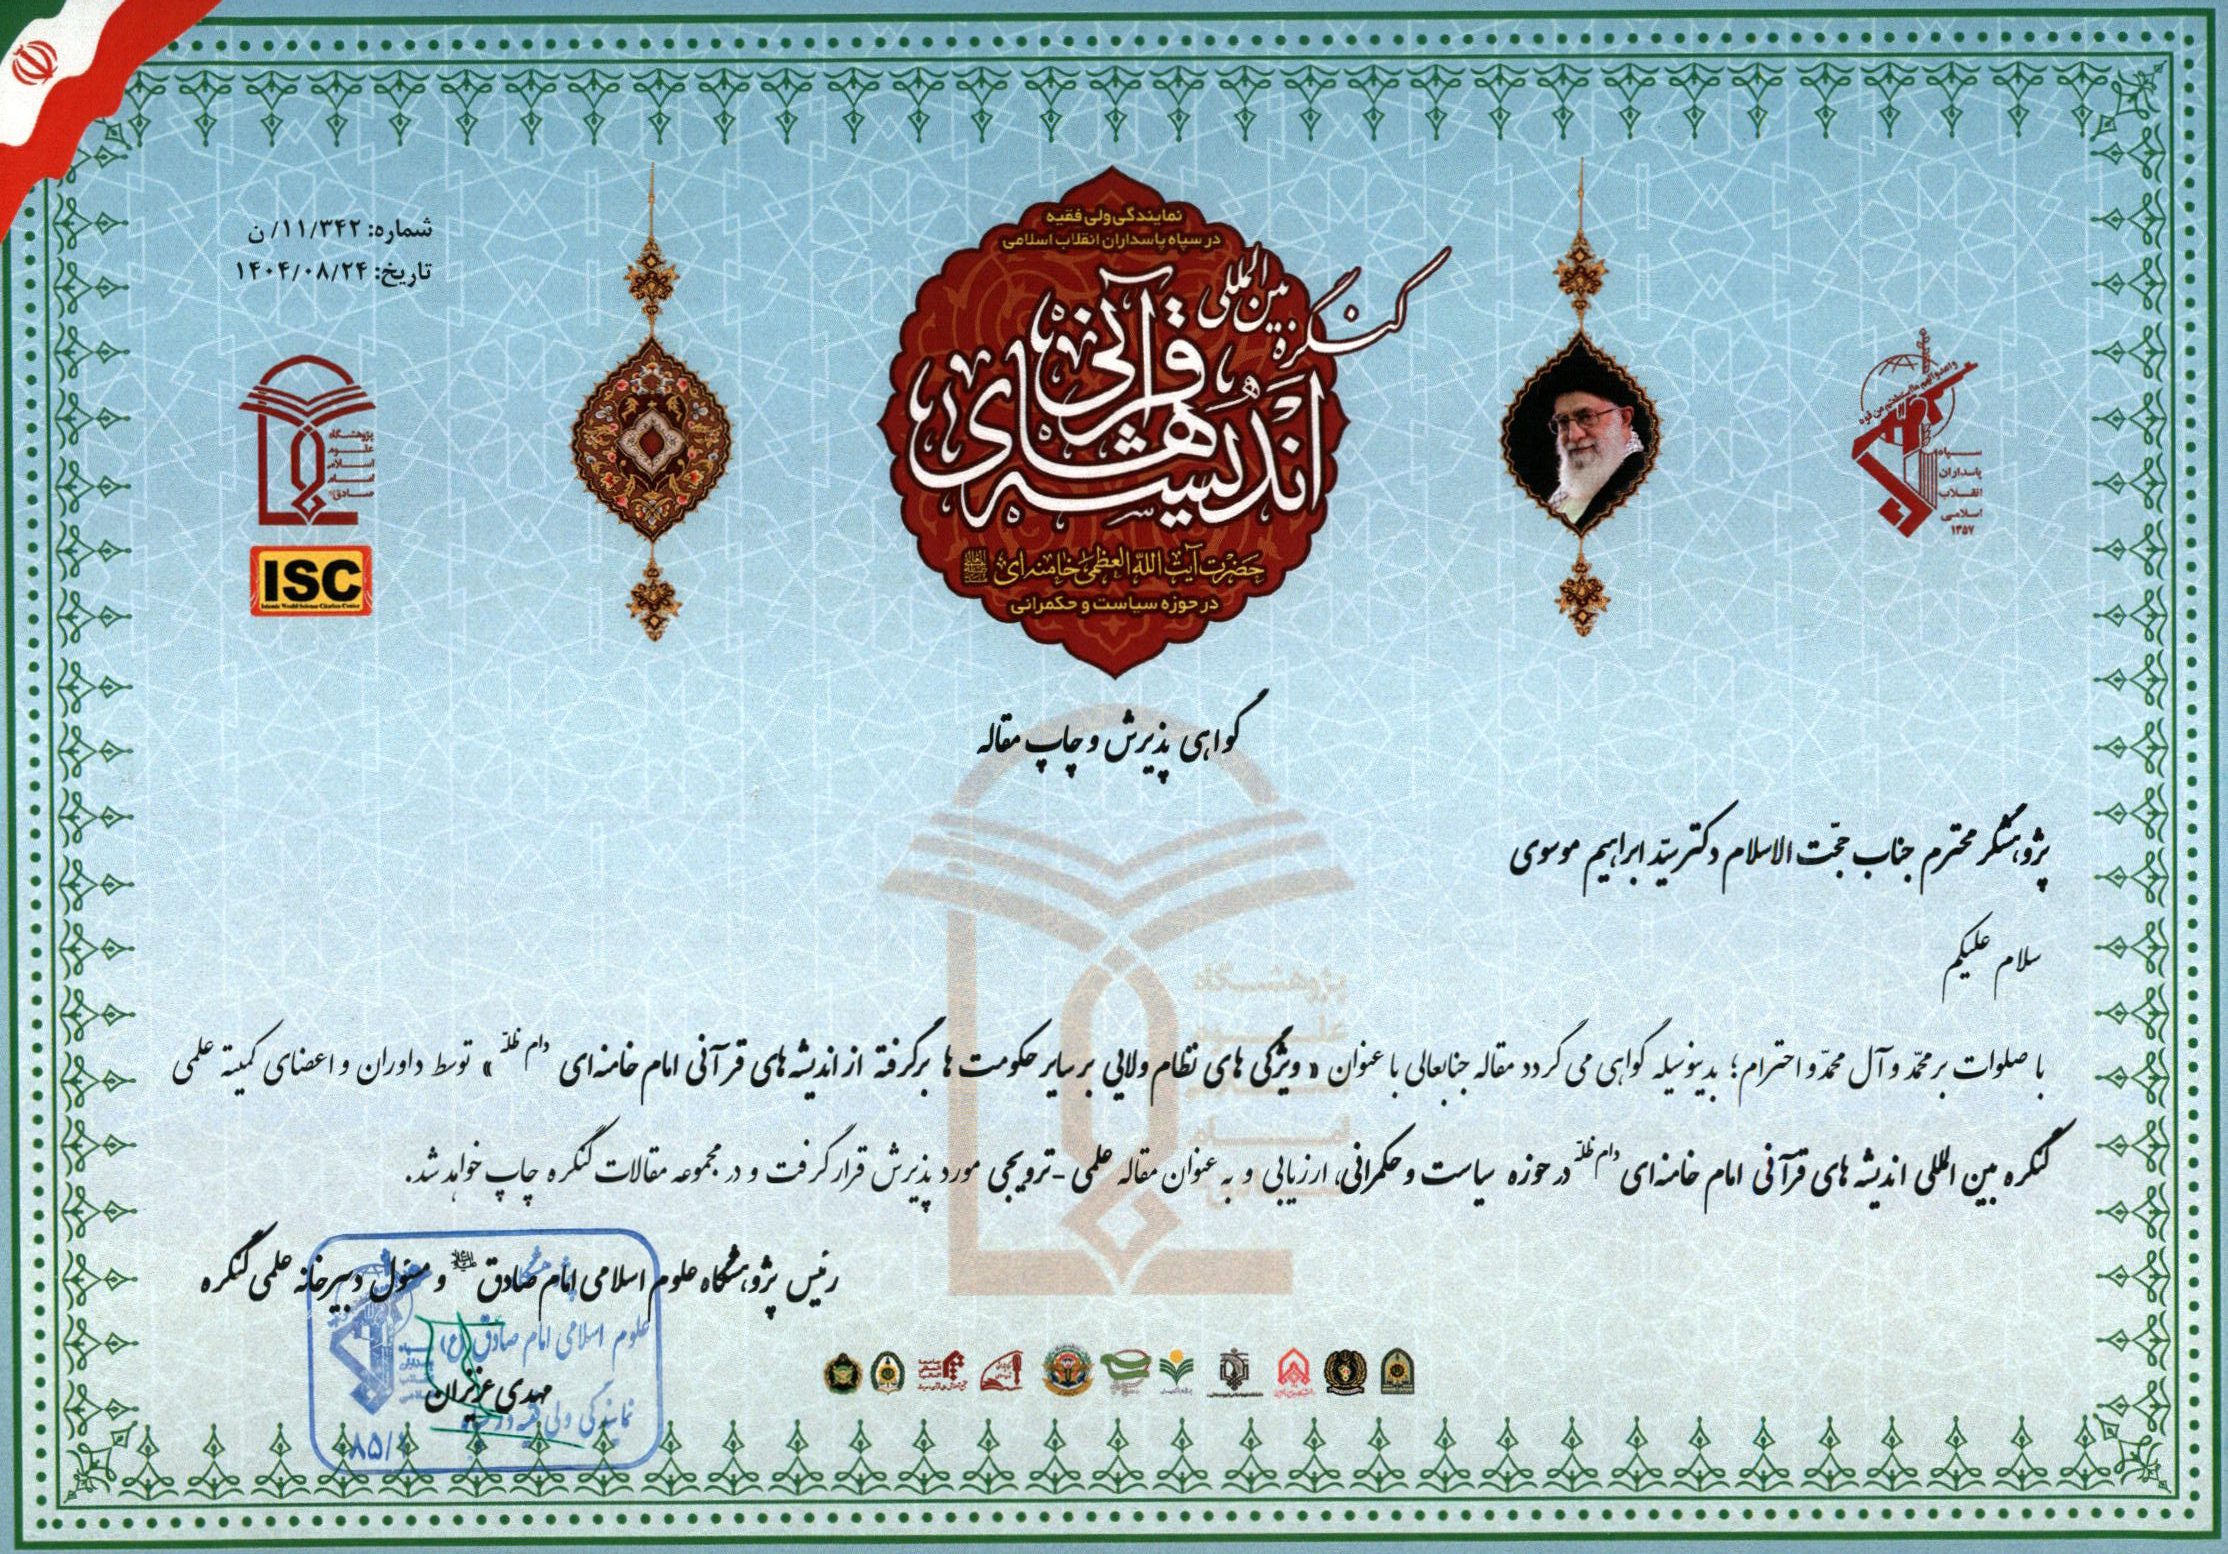 شماره: ۱۱/۳۴۲/ن
تاریخ: ۱۴۰۴/۰۸/۲۴
نمایندگی ولی فقیه
در سپاه پاسداران انقلاب اسلامی
کنگره بین المللی
اندیشه های قرآنی
حضرت آیت الله العظمی خامنه ای
در حوزه سیاست و حکمرانی
سپاه
پاسداران
انقلاب
اسلامی
۱۳۵۷
پژوهشگاه
علوم
اسلامی
امام
صادق
ISC
Islamic World Science Citation Center
گواهی پذیرش و چاپ مقاله
پژوهشگر محترم جناب حجّت الاسلام دکتر سیّد ابراهیم موسوی
سلام علیکم
با صلوات بر محمّد و آل محمّد و احترام؛ بدینوسیله گواهی می گردد مقاله جنابعالی با عنوان « ویژگی های نظام ولایی بر سایر حکومت ها برگرفته از اندیشه های قرآنی امام خامنه ای دام ظلّه » توسط داوران و اعضای کمیته علمی
کنگره بین المللی اندیشه های قرآنی امام خامنه ای دام ظلّه در حوزه سیاست و حکمرانی، ارزیابی و به عنوان مقاله علمی -ترویجی مورد پذیرش قرار گرفت و در مجموعه مقالات کنگره چاپ خواهد شد.
رئیس پژوهشگاه علوم اسلامی امام صادق و مسئول دبیرخانه علمی کنگره
علوم اسلامی امام صادق (ع)
مهدی عزیزان
نمایندگی ولی فقیه در سپاه